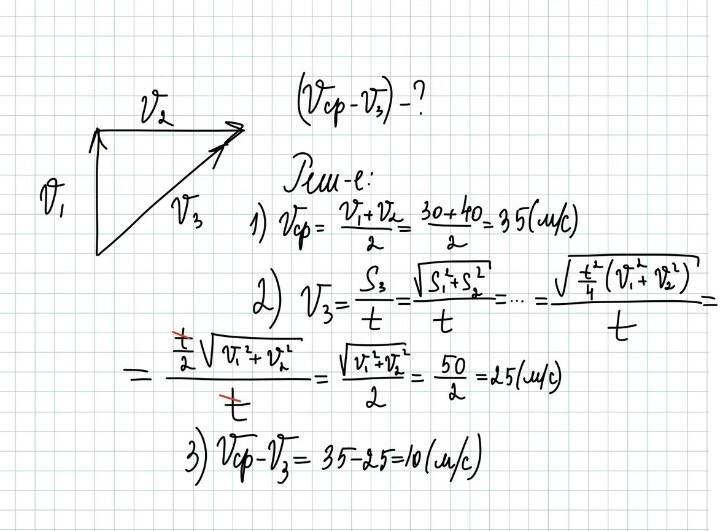 V₂
(Vср - V₃) - ?
V₁
V₃
Реш-е:
1) Vср = (V₁+V₂)/2 = (30+40)/2 = 35 (м/с)
2) V₃ = S₃/t = √(S₁²+S₂²)/t = ... = √(t²/4 (V₁²+V₂²))/t =
= (t/2 √(V₁²+V₂²))/t = √(V₁²+V₂²)/2 = 50/2 = 25 (м/с)
3) Vср - V₃ = 35-25=10 (м/с)